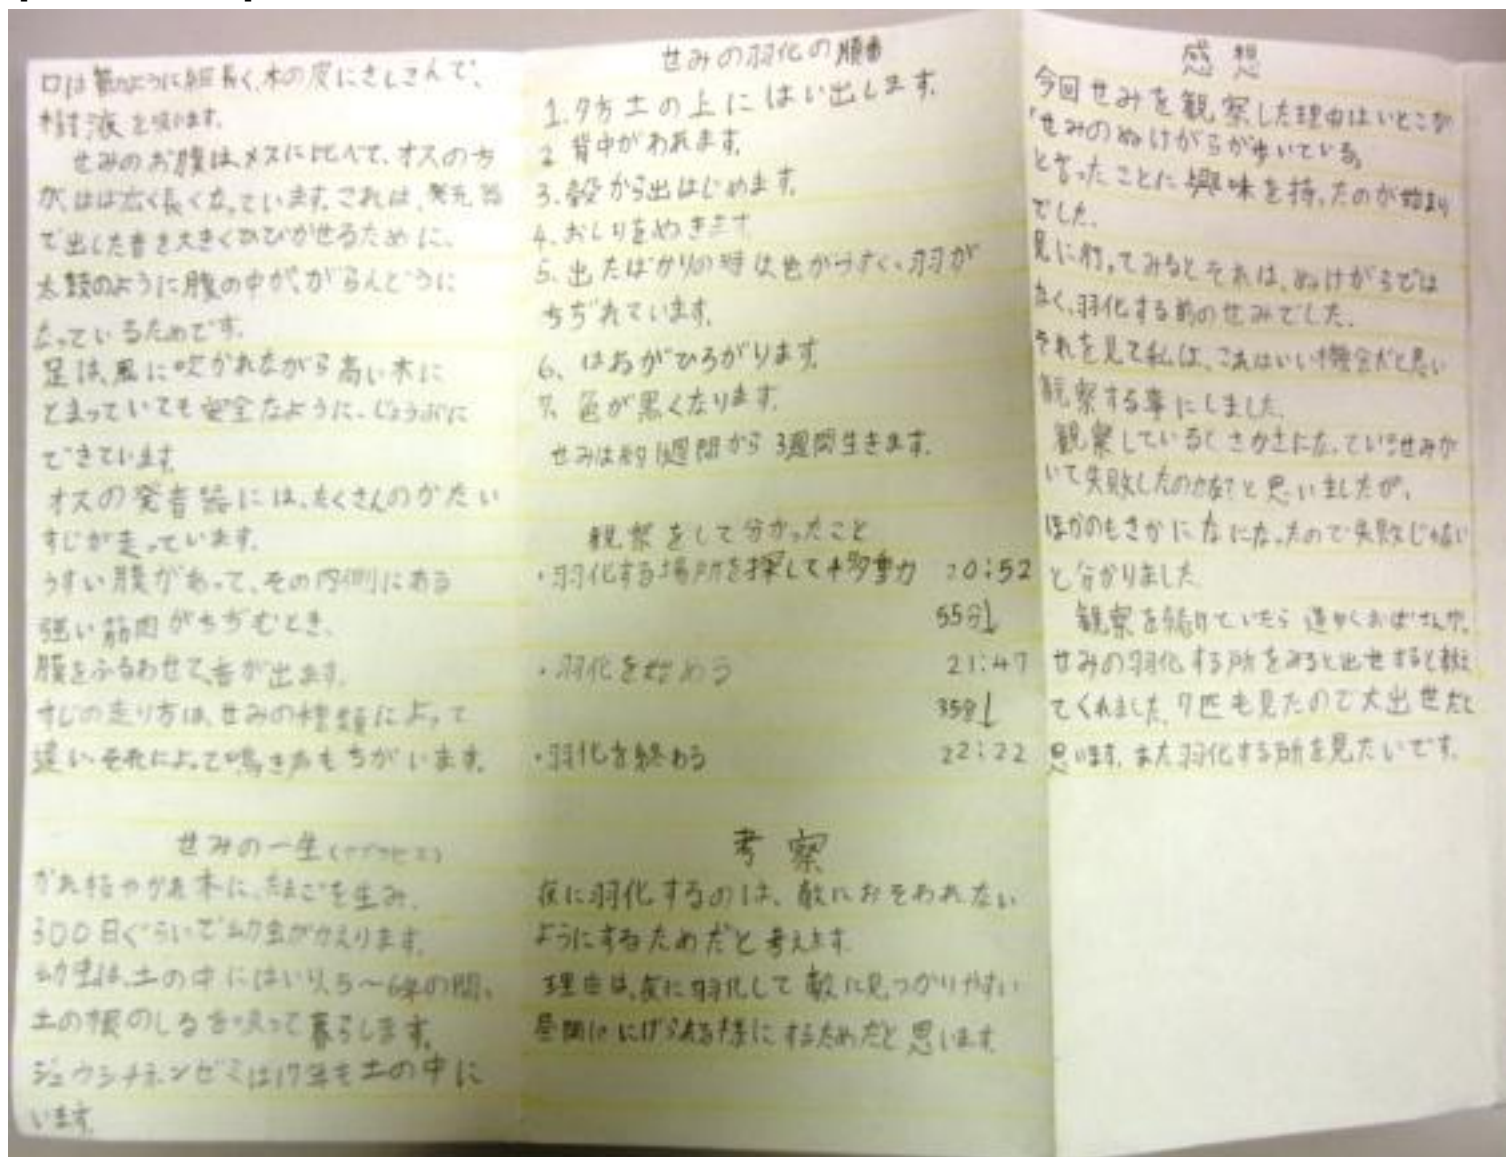 口は管のように細長く、木の皮にさしこんで、
樹液を吸います。
せみのお腹は、メスに比べて、オスの方
が、はば広く長くなっています。これは、発元器
で出した音を大きくひびかせるために、
太鼓のように腹の中が、がらんどうに
なっているためです。
足は、風に吹かれながら高い木に
とまっていても安全なように、じょうぶに
できています。
オスの発音器には、たくさんのかたい
すじが走っています。
うすい膜があって、その内側にある
強い筋肉がちぢむとき、
膜をふるわせて、音が出ます。
すじの走り方は、せみの種類によって
違い、それによって鳴き声もちがいます。
せみの一生(アブラゼミ)
かれ枝やかれ木に、たまごを生み、
300日ぐらいで幼虫がかえります。
幼虫は、土の中にはいり、5〜6年の間、
土の根のしるを吸って暮らします。
ジュウシチネンゼミは17年も土の中に
います。
せみの羽化の順番
1.夕方土の上にはい出します。
2 背中がわれます。
3.殻から出はじめます。
4.おしりをぬきます
5.出たばかりの時は色がうすく、羽が
ちぢれています。
6、はねがひろがります。
7、色が黒くなります。
せみは約1週間から3週間生きます。
観察をして分かったこと
・羽化する場所を探して移動 20:52
55分↓
・羽化を始める 21:47
35分↓
・羽化を終わる 22:22
考察
夜に羽化するのは、敵におそわれない
ようにするためだと考えます。
理由は、夜に羽化して敵に見つかりやすい
昼間ににげられる様にするためだと思います。
感想
今回せみを観察した理由はいとこが
「せみのぬけがらが歩いている。
と言ったことに興味を持ったのが始まり
でした。
見に行ってみるとそれは、ぬけがらでは
なく、羽化する前のせみでした。
それを見て私は、これはいい機会だと思い
観察する事にしました。
観察しているとさかさになっているせみが
いて失敗したのかな?と思いましたが、
ほかのもさかになになったので失敗じゃない
と分かりました。
観察を続けていたら道ゆくおばさんが、
せみの羽化する所をみると出世すると教え
てくれました。7匹も見たので大出世だと
思います。また羽化する所を見たいです。